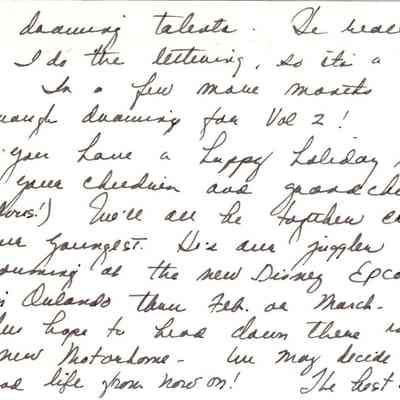 drawing talents. He
I do the lettering, so it's a
In a few more months
drawing for Vol 2!
you have a happy holiday,
your children and
We'll all be together
youngest. He's our juggler
at the new Disney Epco
Orlando thru Feb. or March-
hope to head down there
new Motorhome- We may decide
life from now on! The best